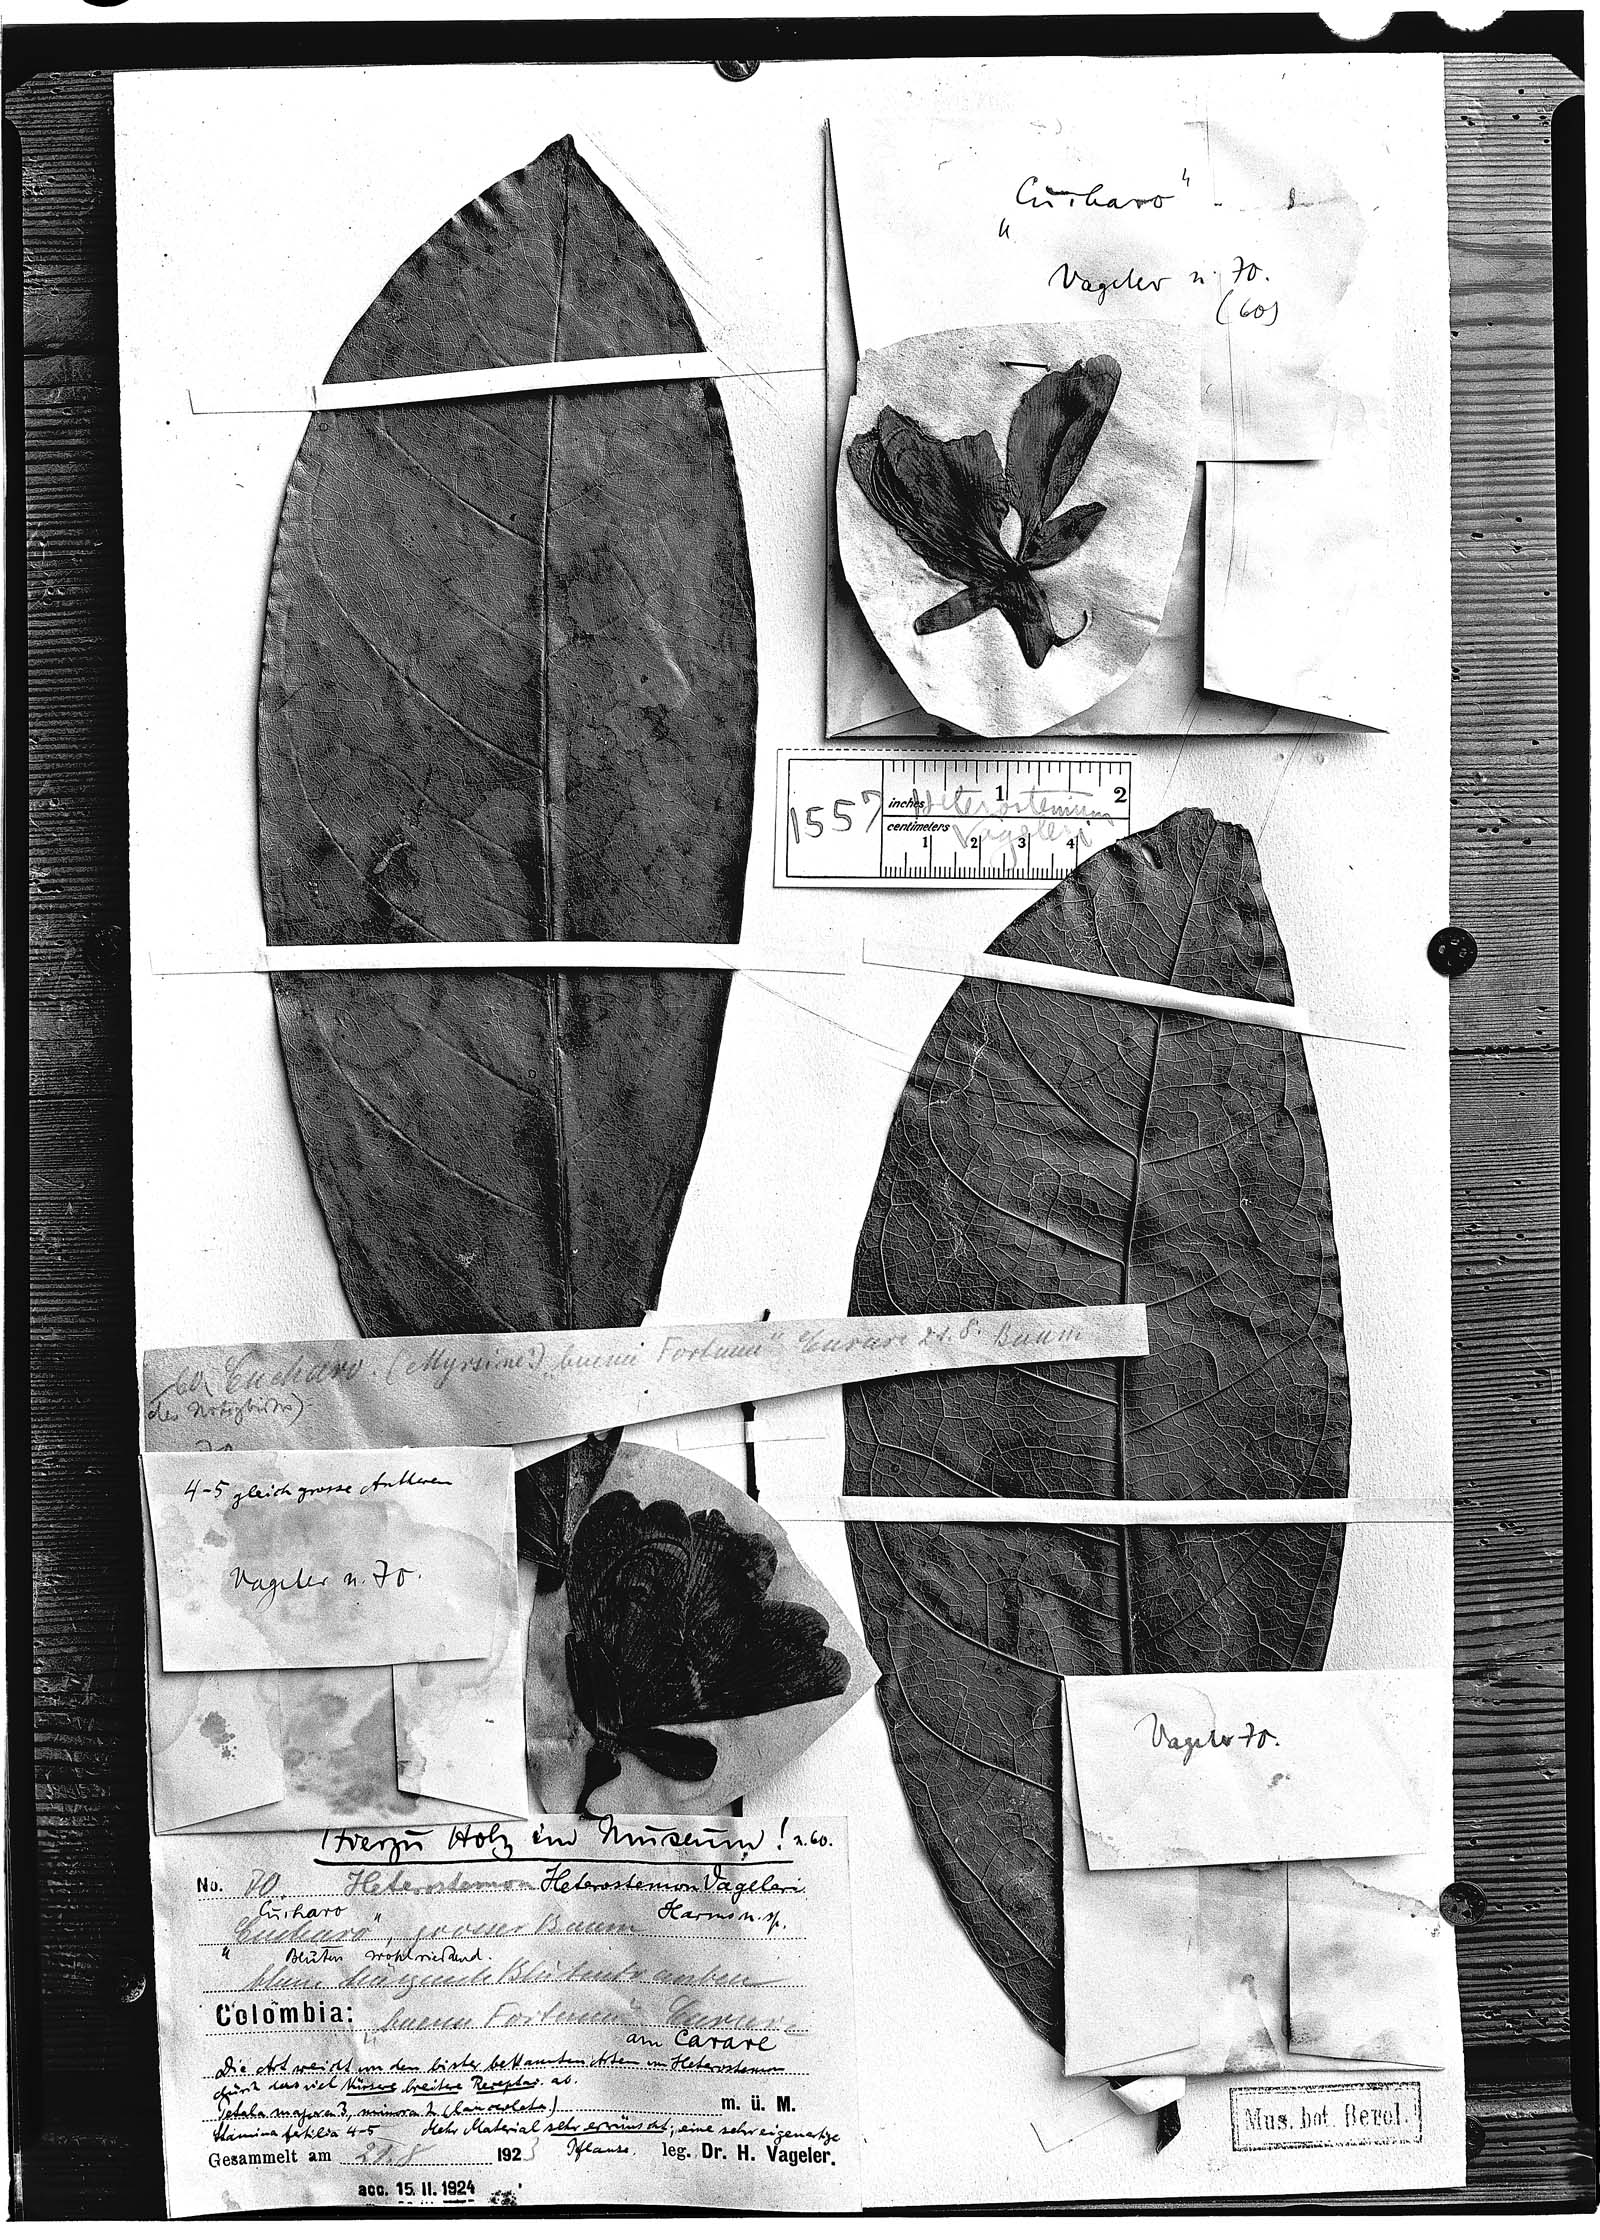 "Cuchavo"
Vageler n. 70.
(60)
1557
inches 1 2
Heterostemum
Vageleri
centimeters 1 2 3 4
60. Cuchavo. (Myrsine?) "buena Fortuna" Carare 21.8. Baum
des Notizbuchs)
70
4-5 gleich grosse Antheren
Vageler n. 70.
Vageler 70.
Hierzu Holz im Museum! n. 60.
No. 70. Heterostemon Heterostemon Vageleri
Cuchavo Harms n. sp.
"Cuchavo", grosser Baum
Blüten wohlriechend.
blaue hängende Blütentrauben
Colombia: "buena Fortuna" Carare
am Carare
Die Art weicht von den bisher bekannten Arten von Heterostemon
durch das viel kürzere breitere Receptac. ab.
Petala majora 3, minora 2 (lanceolata)
m. ü. M.
Stamina fertilia 4-5 Mehr Material sehr erwünscht, eine sehr eigenartige
Pflanze.
Gesammelt am 21.8 1923 leg. Dr. H. Vageler.
acc. 15. II. 1924
Mus. bot. Berol.